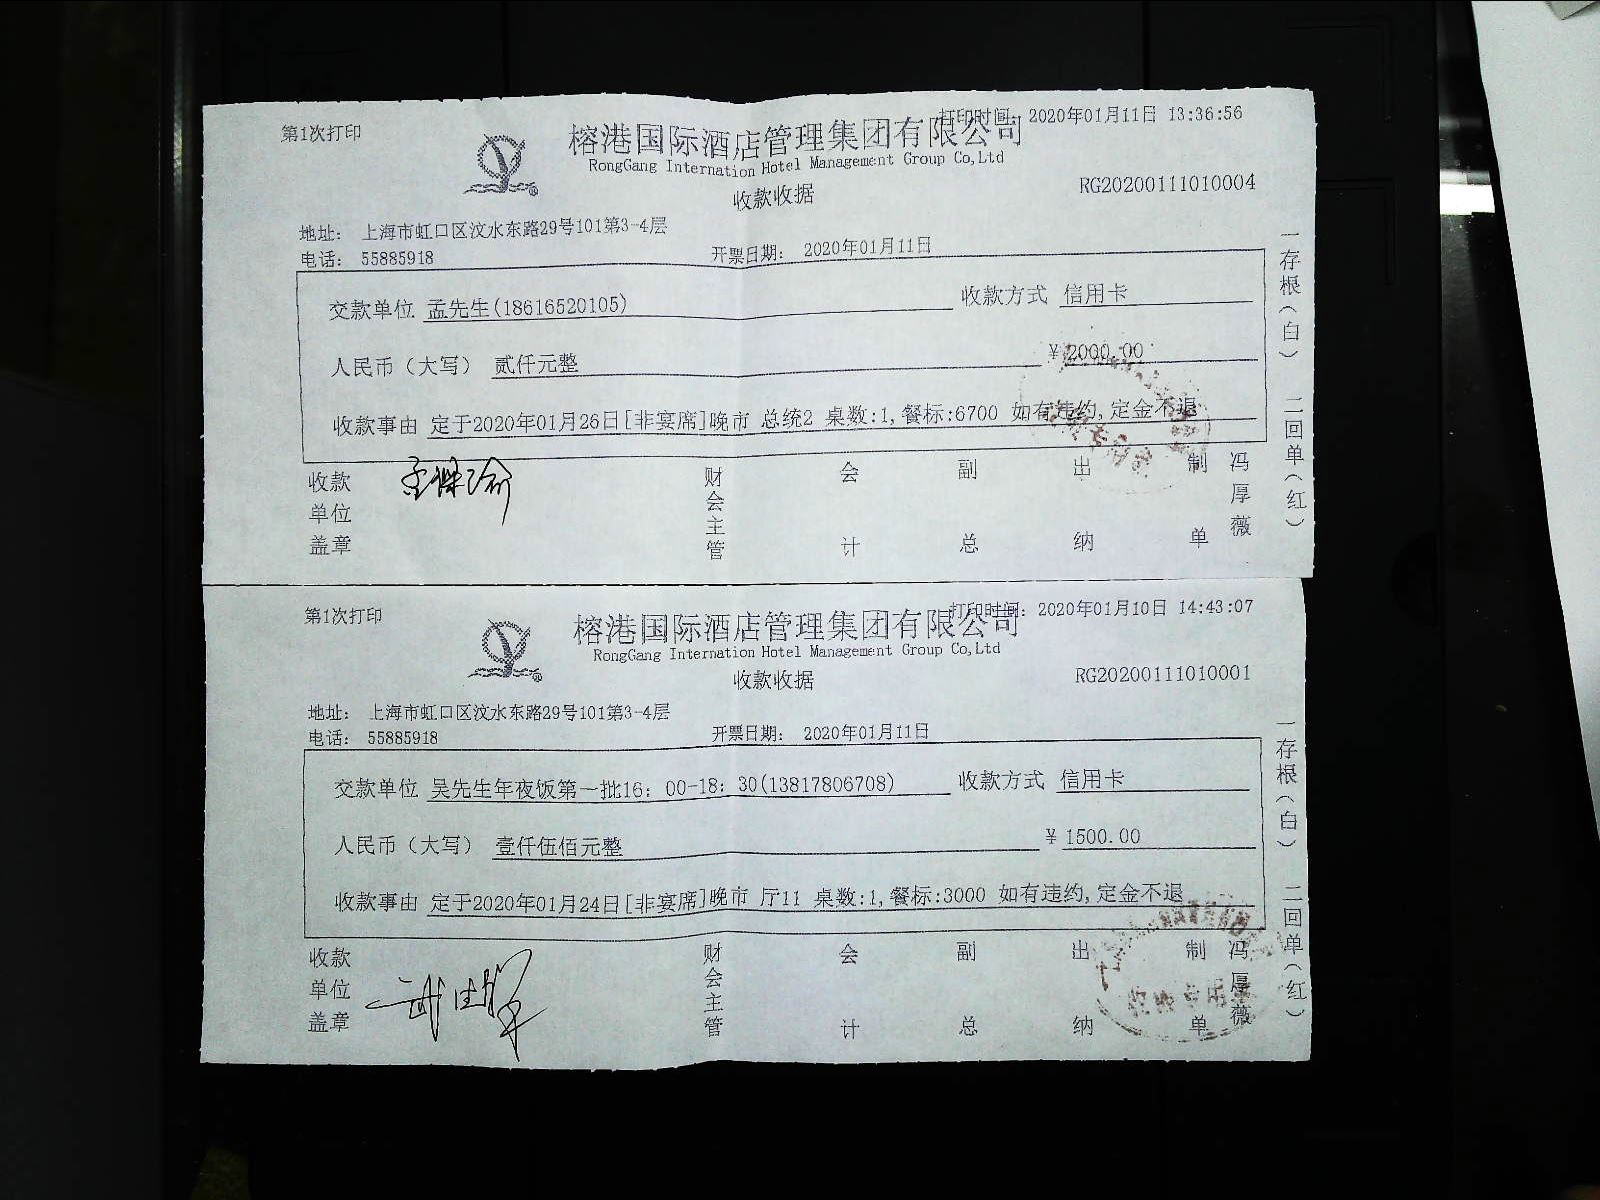 第1次打印
打印时间: 2020年01月11日 13:36:56
榕港国际酒店管理集团有限公司
RongGang Internation Hotel Management Group Co,Ltd
收款收据
RG20200111010004
地址: 上海市虹口区汶水东路29号101第3-4层
电话: 55885918
开票日期: 2020年01月11日
交款单位 孟先生(18616520105)
收款方式 信用卡
人民币(大写) 贰仟元整
¥2000.00
收款事由 定于2020年01月26日[非宴席]晚市 总统2 桌数:1,餐标:6700 如有违约,定金不退
收款单位盖章
财会主管
会计
副总
出纳
制单
冯厚薇
一存根(白) 二回单(红)
第1次打印
打印时间: 2020年01月10日 14:43:07
榕港国际酒店管理集团有限公司
RongGang Internation Hotel Management Group Co,Ltd
收款收据
RG20200111010001
地址: 上海市虹口区汶水东路29号101第3-4层
电话: 55885918
开票日期: 2020年01月11日
交款单位 吴先生年夜饭第一批16: 00-18: 30(13817806708)
收款方式 信用卡
人民币(大写) 壹仟伍佰元整
¥1500.00
收款事由 定于2020年01月24日[非宴席]晚市 厅11 桌数:1,餐标:3000 如有违约,定金不退
收款单位盖章
财会主管
会计
副总
出纳
制单
冯厚薇
一存根(白) 二回单(红)